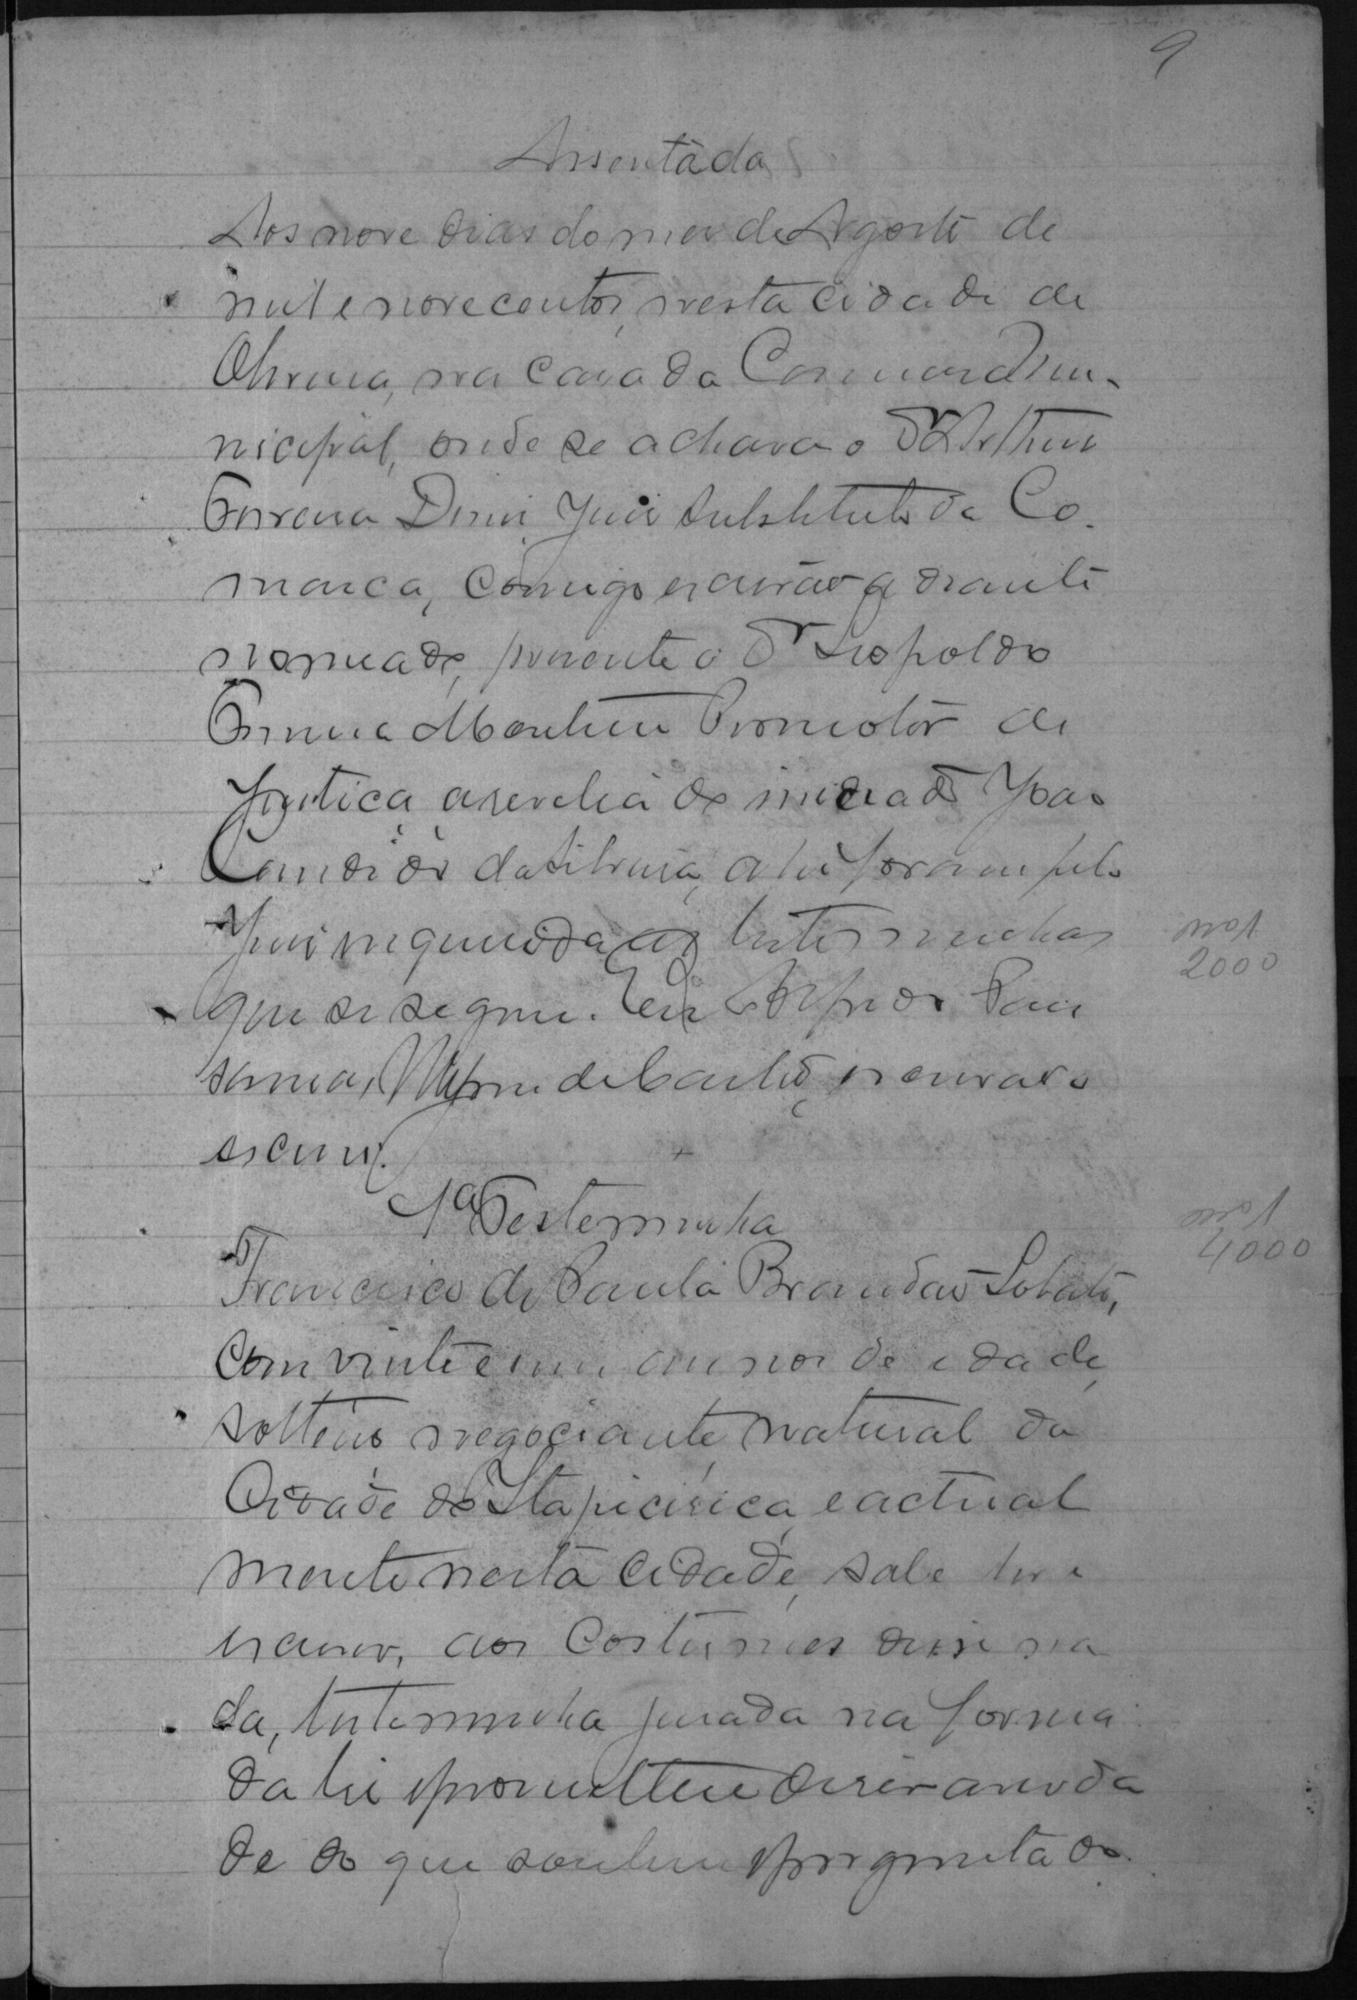 9
Assentada
Aos nove dias do mez de Agosto de
mil e novecentos, nesta cidade de
Oliveira, na casa da Camara Mu-
nicipal, onde se achava o Dr Arthur
Diniz, Juiz Substituto da Co-
marca, comigo escrivão adiante
nomeado, presente o Dr Leopoldo
Ferreira Monteiro Promotor de
Justiça a revelia do indiciado João
Candido da Silveira, ahi foram pelo
Juiz inqueridas as testemunhas
que se seguem. Eu
de Castro, escrivão o
escrevi.
1a Testemunha
Francisco de Paula Brandão Lobato,
com vinte e um annos de edade,
solteiro negociante, natural da
Cidade de Itapicirica, e actual
mente nesta cidade, sabe ler e
escrever, aos costumes disse na
da, testemunha jurada na forma
da lei prometteu diser a verda
de do que soubesse e perguntado
2000
4000